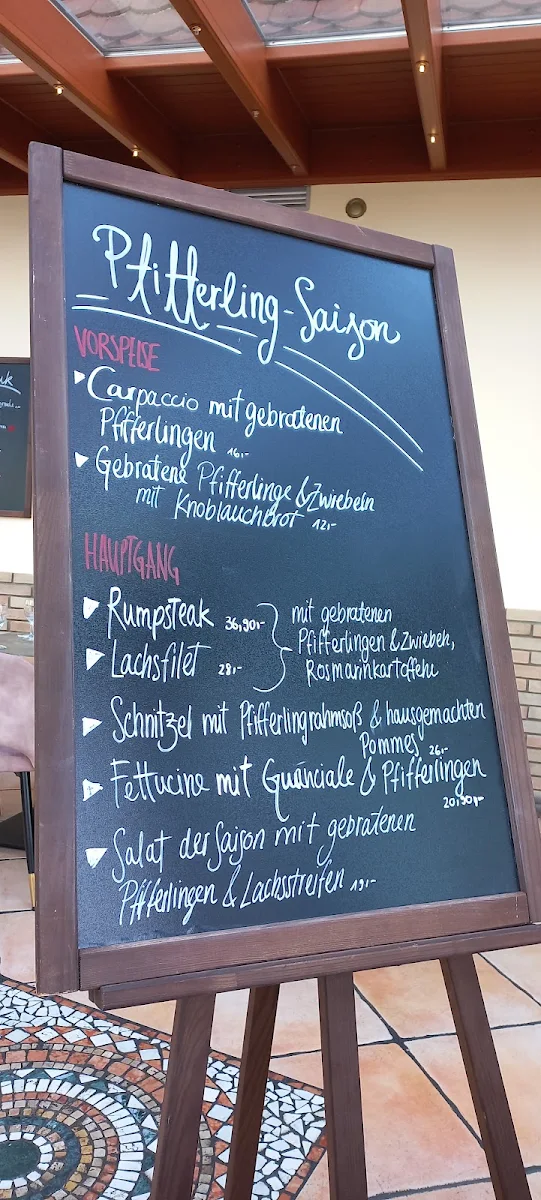 Pfifferling-Saison
VORSPEISE
Carpaccio mit gebratenen
Pfifferlingen 16,-
Gebratene Pfifferlinge & Zwiebeln
mit Knoblauchbrot 12,-
HAUPTGANG
Rumpsteak 36,90,-
Lachsfilet 28,-
mit gebratenen
Pfifferlingen & Zwiebeln,
Rosmarinkartoffeln
Schnitzel mit Pfifferlingrahmsoß & hausgemachten
Pommes 26,-
Fettucine mit Guanciale & Pfifferlingen
20,90,-
Salat der Saison mit gebratenen
Pfifferlingen & Lachsstreifen 19,-